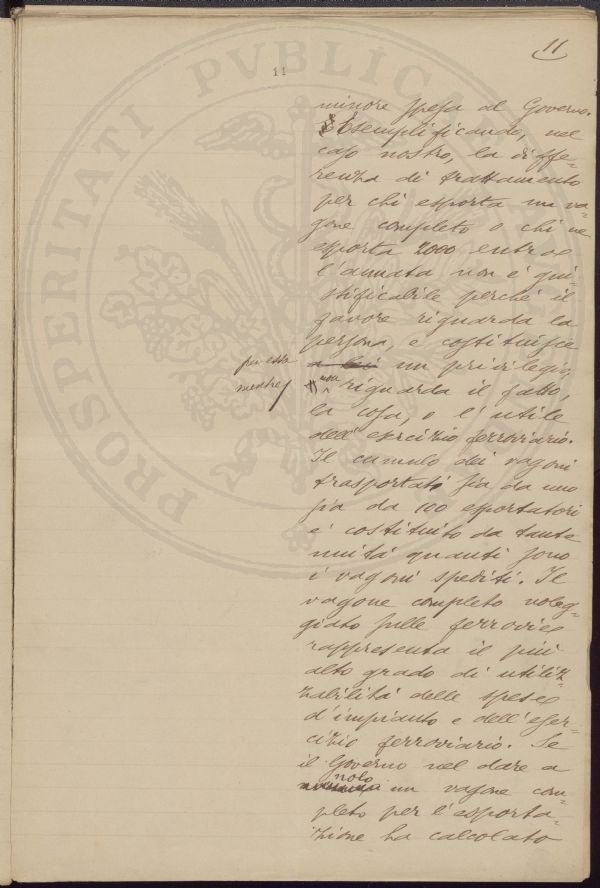 11
11
PROSPERITATI PVBLICAE
minore spesa al Governo.
Esemplificando, nel
caso nostro, la diffe=
renza di trattamento
per chi esporta un va=
gone completo o chi ne
esporta 2000 entro
l'annata non è giu=
stificabile perché il
favore riguarda la
persona, e costituisce
a lei un privilegio,
per essa
mentre non riguarda il fatto,
la cosa, o l'utile
dell'esercizio ferroviario.
Il cumulo dei vagoni
trasportati sia da uno
sia da 100 esportatori
è costituito da tante
unità quanti sono
i vagoni spediti. Il
vagone completo noleg=
giato sulle ferrovie
rappresenta il più
alto grado di utiliz=
zabilità delle spese
d'impianto e dell'eser=
cizio ferroviario. Se
il Governo nel dare a
nolo un vagone com=
pleto per l'esporta=
zione ha calcolato